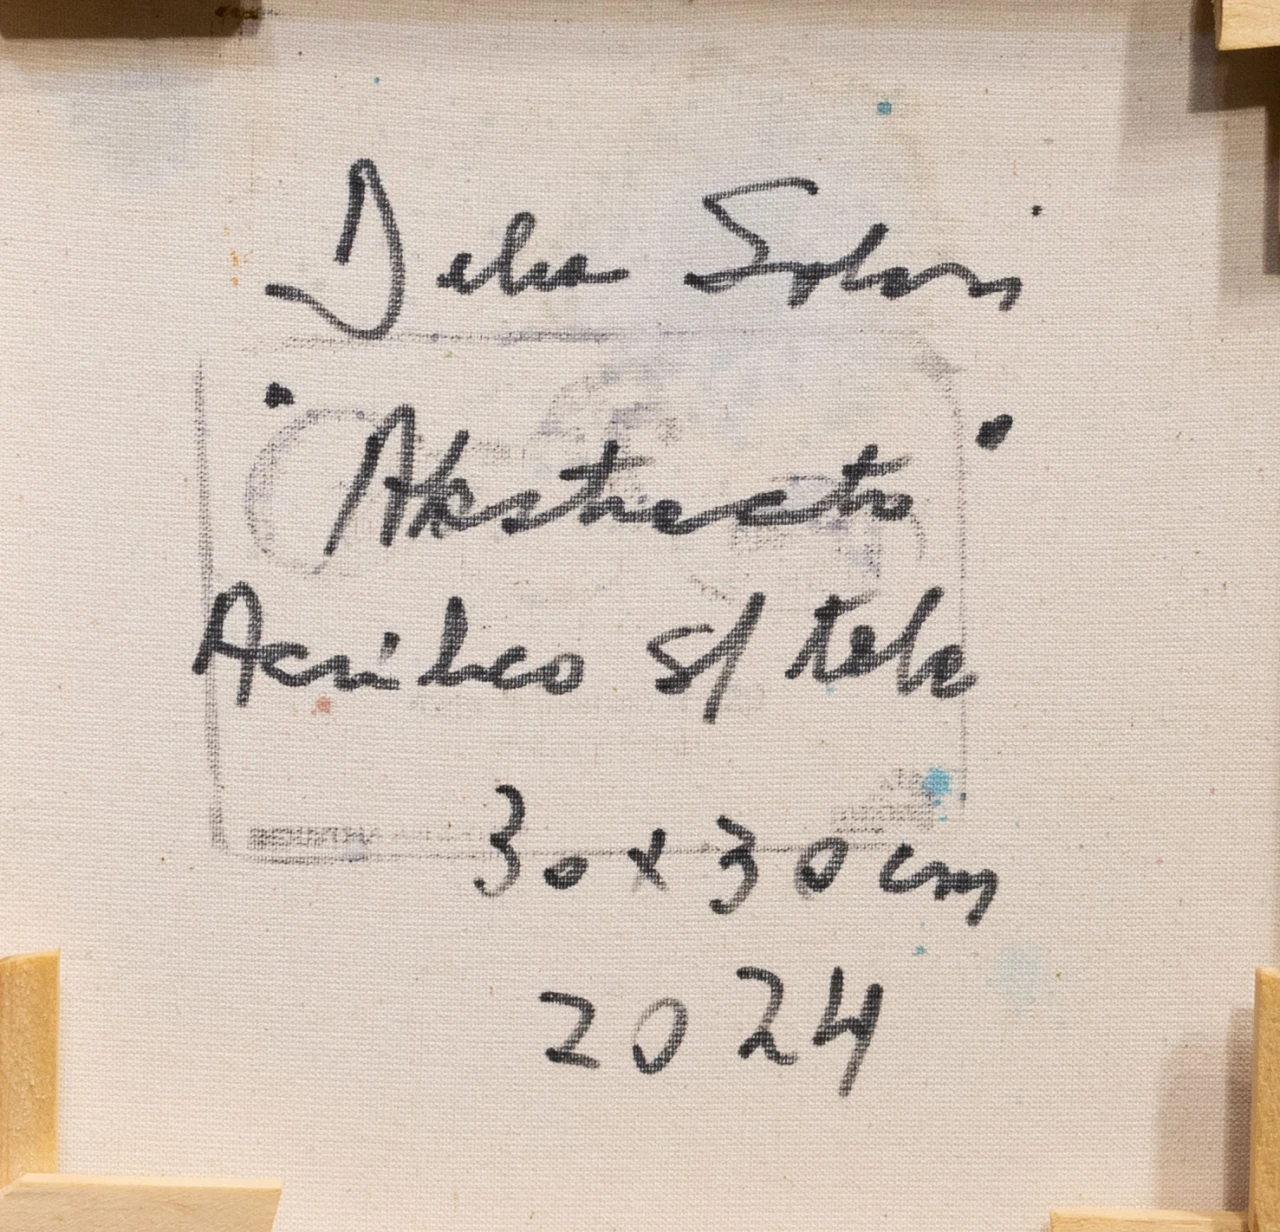 Delia Solari
"Abstracto"
Acrílico s/ tela
30x30cm
2024